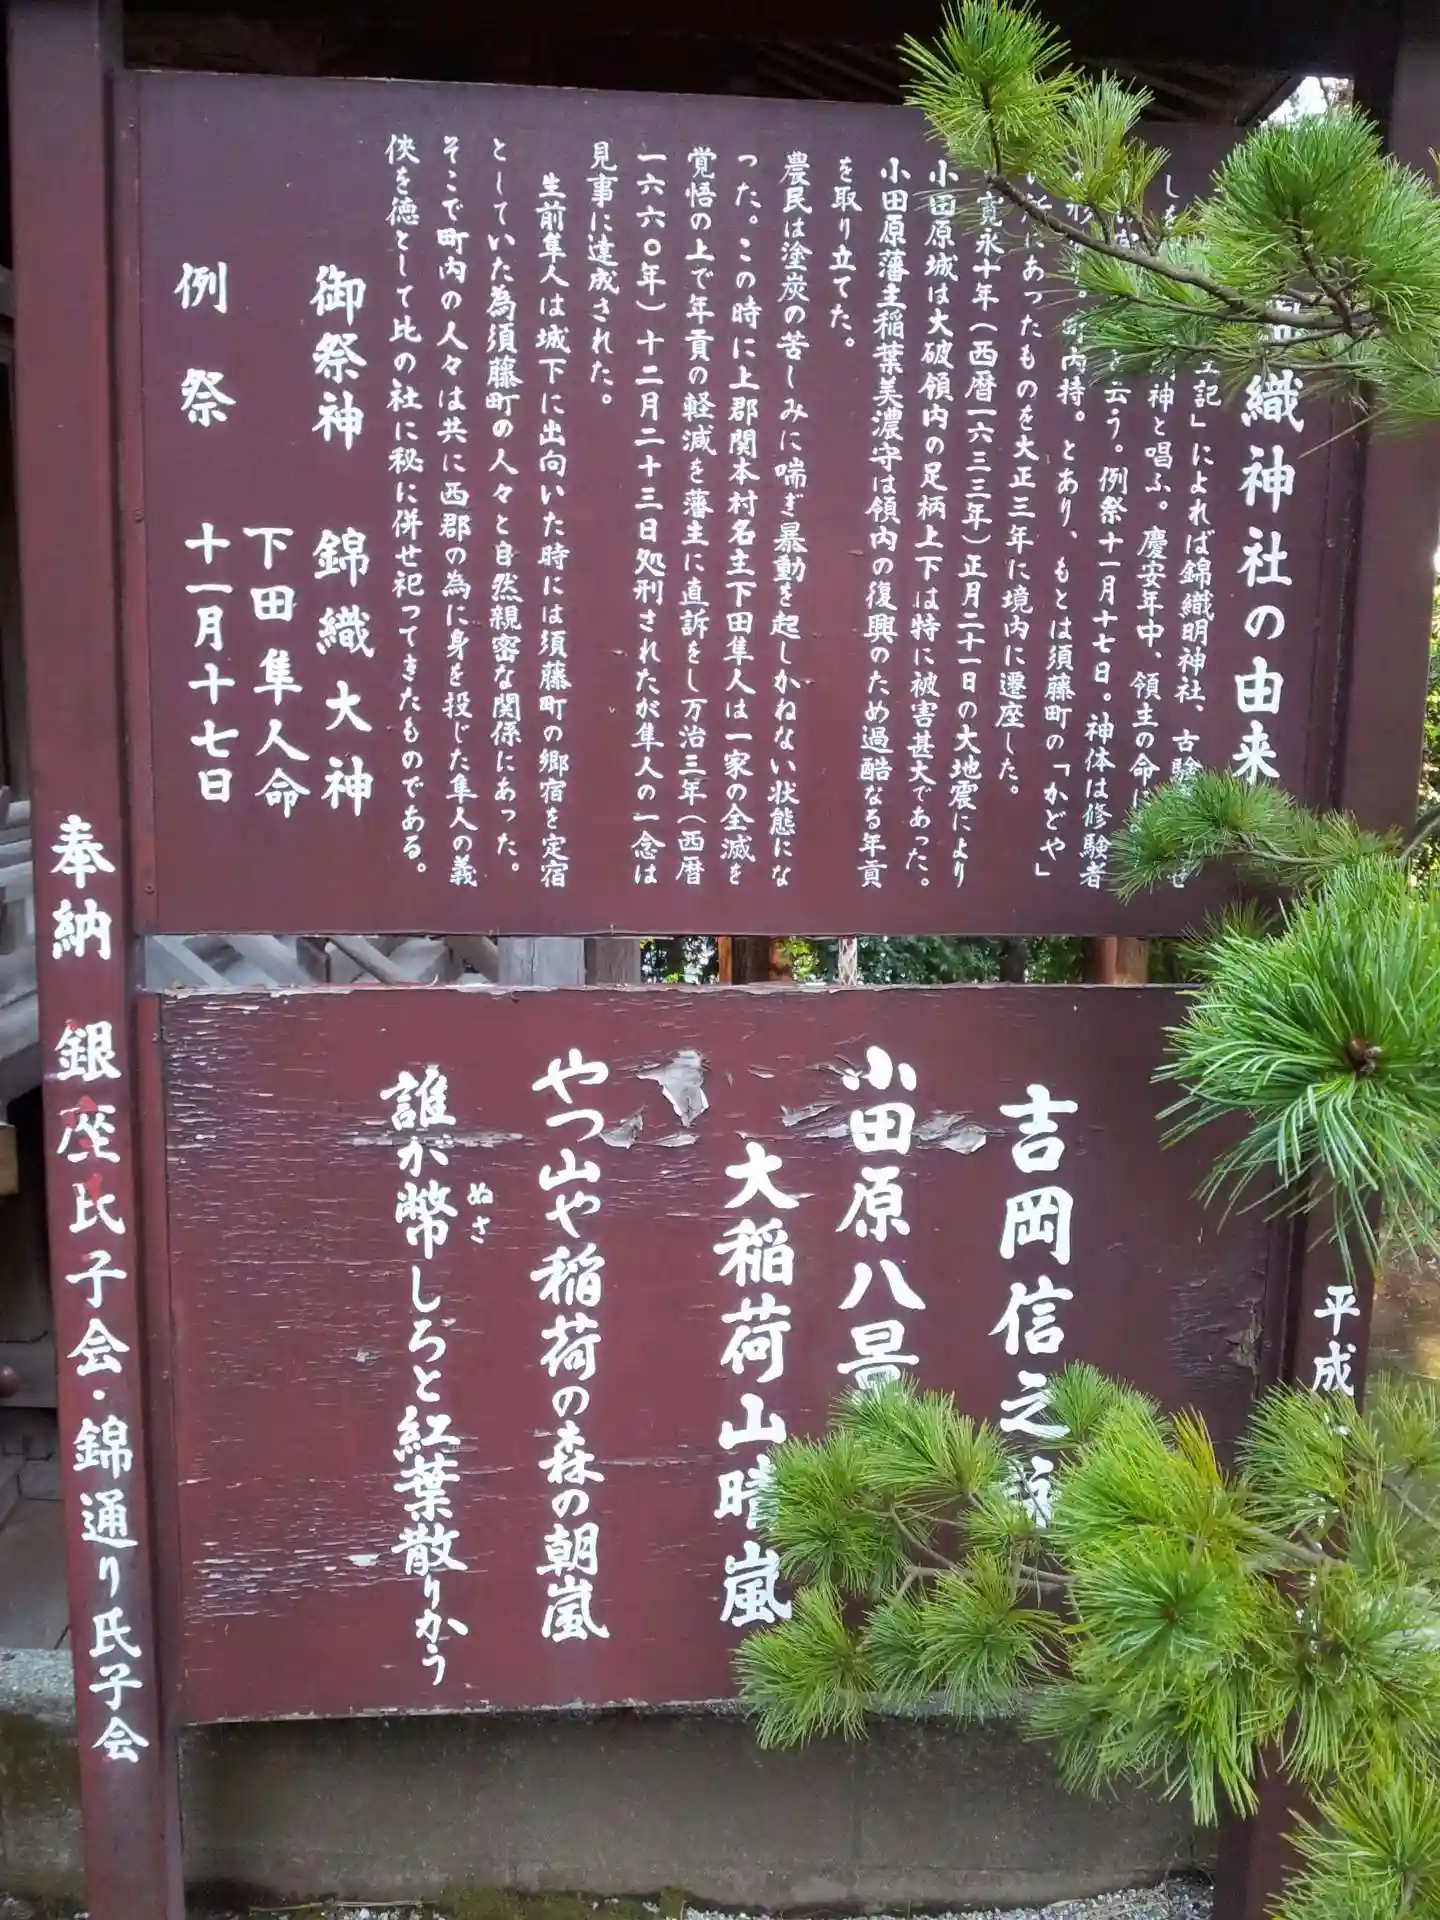 織神社の由来
記」によれば錦織明神社、古
神と唱ふ。慶安年中、領主の命
と云う。例祭十一月十七日。神体は修験者
町内持。とあり、もとは須藤町の「かどや」
にあったものを大正三年に境内に遷座した。
寛永十年(西暦一六三三年)正月二十一日の大地震により
小田原城は大破領内の足柄上下は特に被害甚大であった。
小田原藩主稲葉美濃守は領内の復興のため過酷なる年貢
を取り立てた。
農民は塗炭の苦しみに喘ぎ暴動を起しかねない状態にな
った。この時に上郡関本村名主下田隼人は一家の全滅を
覚悟の上で年貢の軽減を藩主に直訴をし万治三年(西暦
一六六〇年)十二月二十三日処刑されたが隼人の一念は
見事に達成された。
生前隼人は城下に出向いた時には須藤町の郷宿を定宿
としていた為須藤町の人々と自然親密な関係にあった。
そこで町内の人々は共に西郡の為に身を投じた隼人の義
侠を徳として比の社に秘に併せ祀ってきたものである。
御祭神 錦織大神
下田隼人命
例祭 十一月十七日
吉岡信之
小田原八景
大稲荷山晴嵐
やつ山や稲荷の森の朝嵐
誰が幣しろと紅葉散りかう
ぬさ
平成
奉納 銀座氏子会・錦通り氏子会